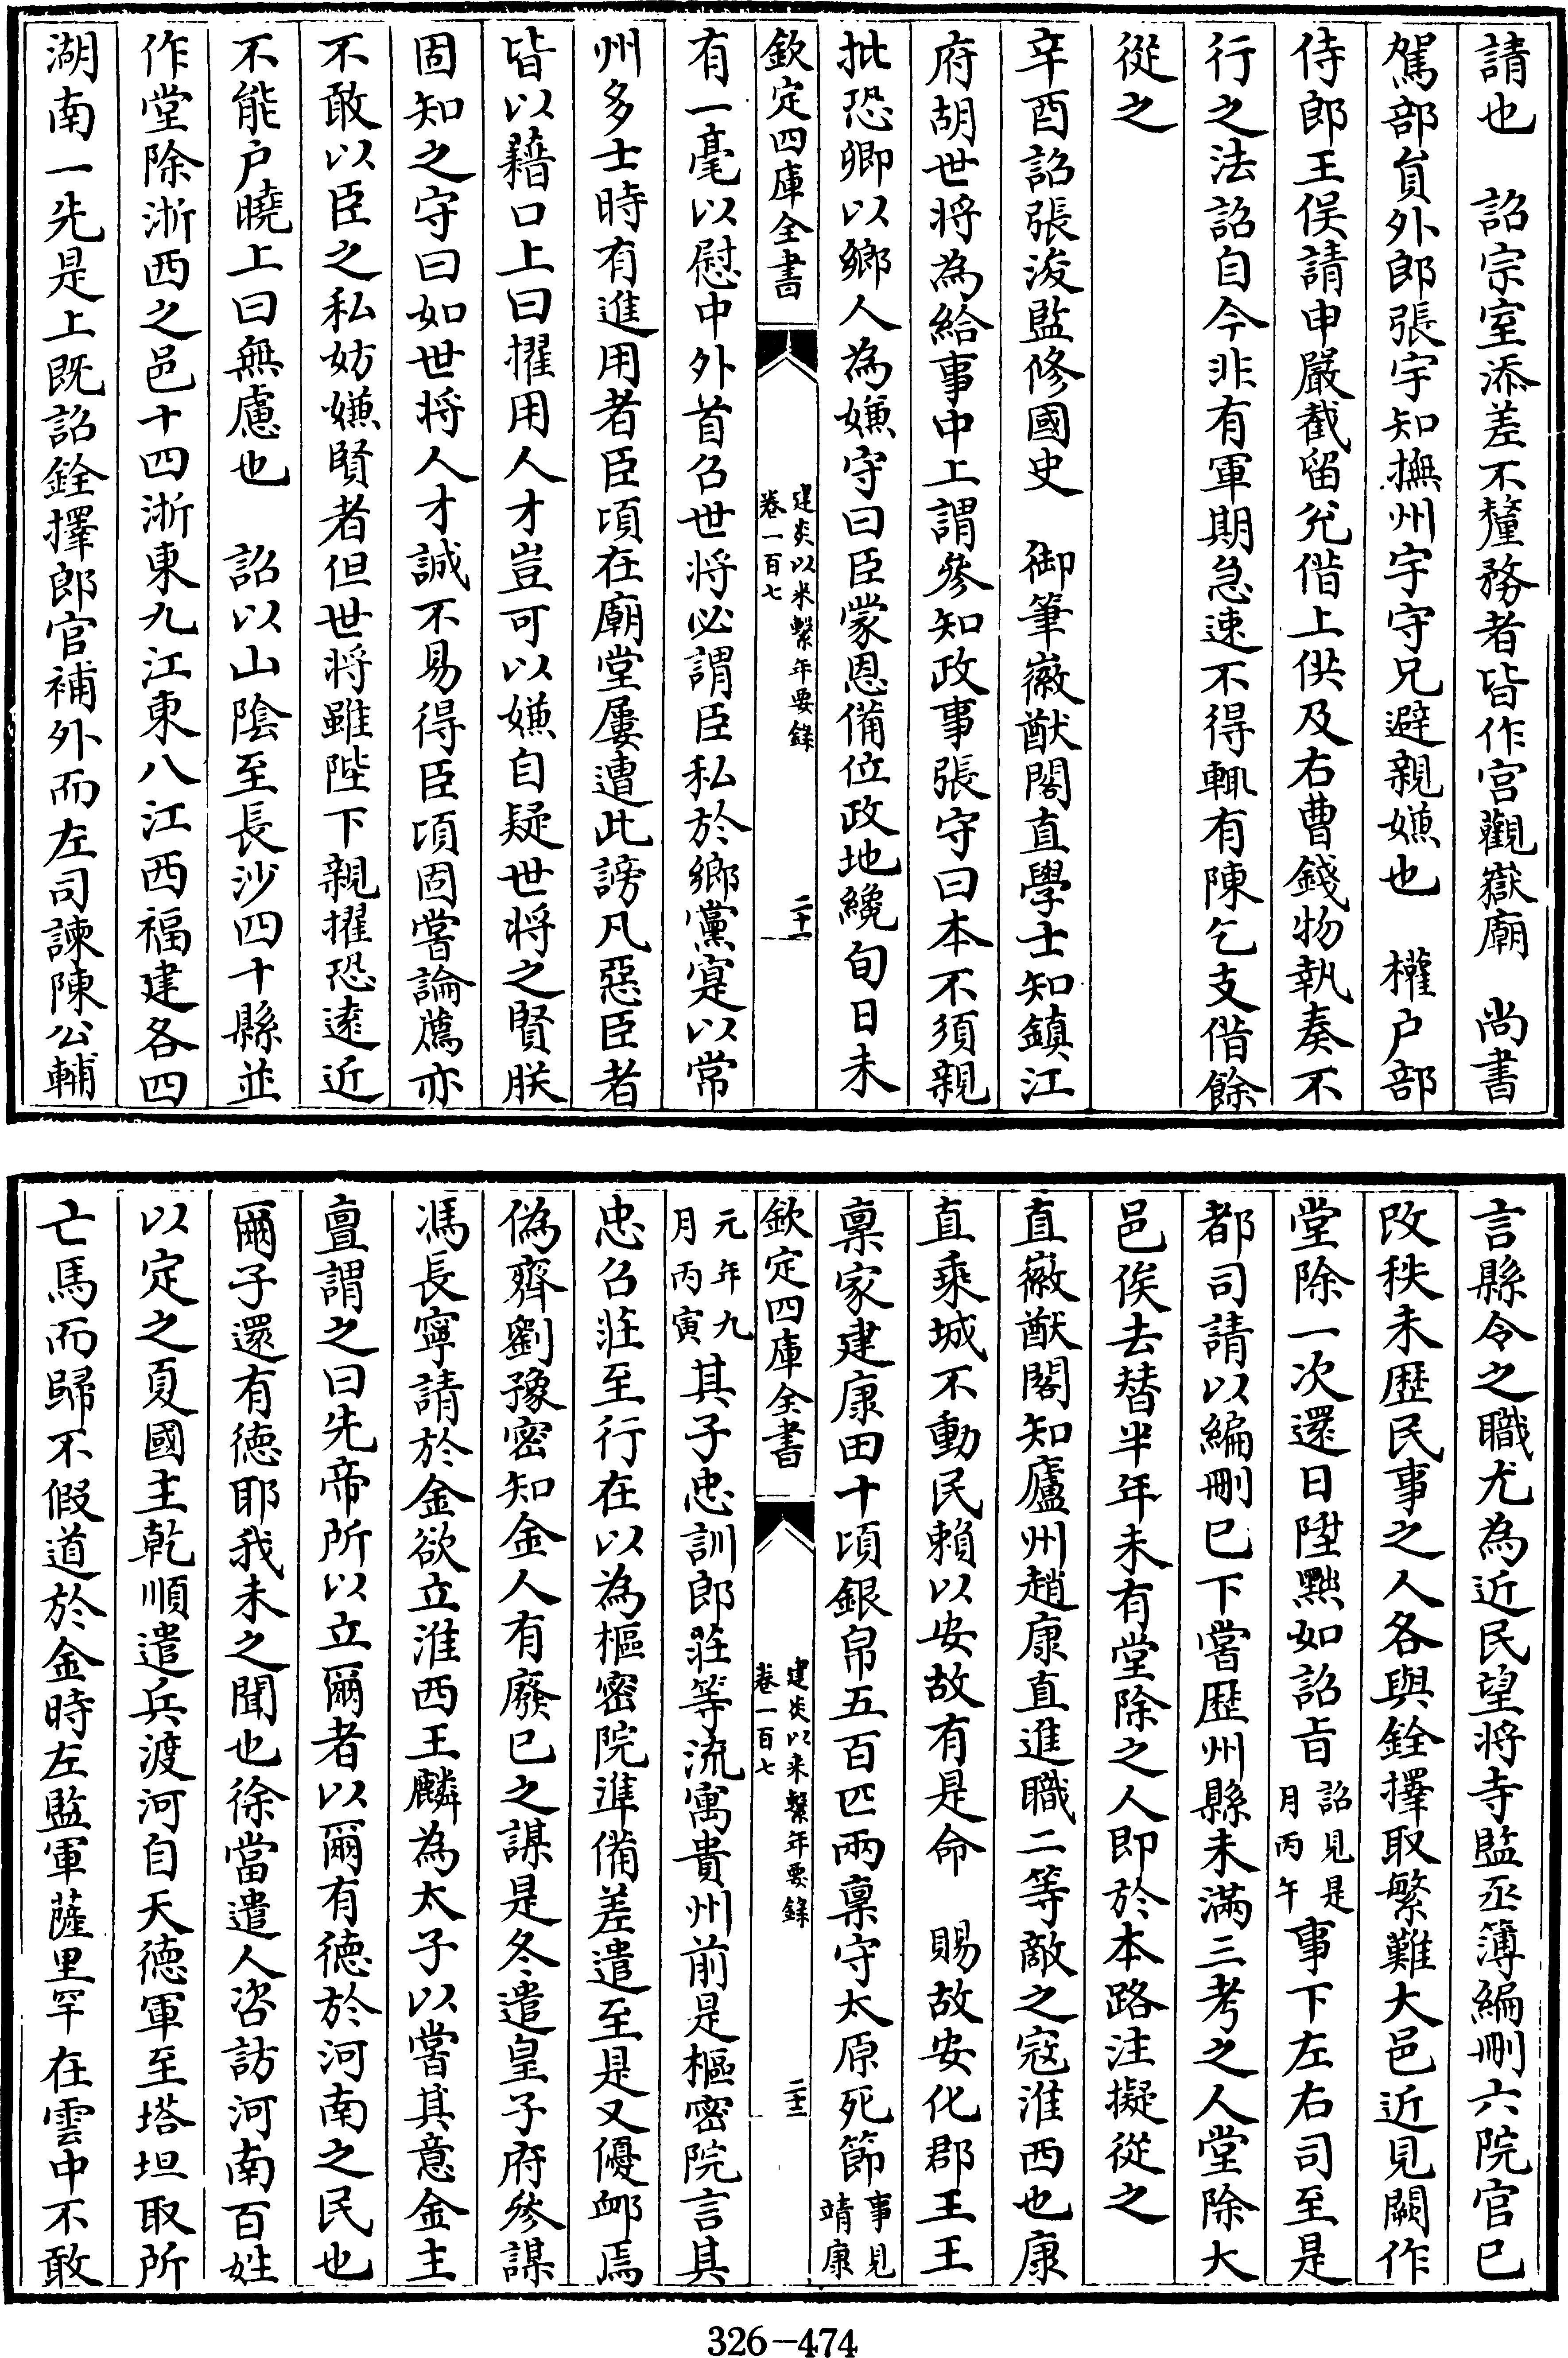 請也　詔宗室添差不釐務者皆作宮觀嶽廟　尚書
駕部員外郎張宇知撫州宇守兄避親嫌也　權户部
侍郎王俁請申嚴截留兊借上供及右曹錢物執奏不
行之法詔自今非有軍期急速不得輒有陳乞支借餘
從之
辛酉詔張浚監修國史　御筆徽猷閣直學士知鎮江
府胡世將為給事中上謂參知政事張守曰本不須親
批恐卿以鄉人為嫌守曰臣蒙恩備位政地纔旬日未
欽定四庫全書
建炎以來繫年要錄
卷一百七
二十一
有一毫以慰中外首召世將必謂臣私於鄉黨寔以常
州多士時有進用者臣頃在廟堂屢遭此謗凡惡臣者
皆以藉口上曰擢用人才豈可以嫌自疑世將之賢朕
固知之守曰如世將人才誠不易得臣頃固嘗論薦亦
不敢以臣之私妨嫌賢者但世將雖陛下親擢恐遠近
不能户曉上曰無慮也　詔以山陰至長沙四十縣並
作堂除浙西之邑十四浙東九江東八江西福建各四
湖南一先是上既詔銓擇郎官補外而左司諫陳公輔
言縣令之職尤為近民望將寺監丞簿編刪六院官已
改秩未歷民事之人各與銓擇取繁難大邑近見闕作
堂除一次還日陞黜如詔旨詔見是月丙午事下左右司至是
都司請以編刪已下嘗歷州縣未滿三考之人堂除大
邑俟去替半年未有堂除之人即於本路注擬從之
直徽猷閣知廬州趙康直進職二等敵之寇淮西也康
直乘城不動民賴以安故有是命　賜故安化郡王王
稟家建康田十頃銀帛五百匹兩稟守太原死節事見靖康
欽定四庫全書
建炎以來繫年要錄
卷一百七
二十二
元年九月丙寅其子忠訓郎莊等流寓貴州前是樞密院言其
忠召莊至行在以為樞密院準備差遣至是又優卹焉
偽齊劉豫密知金人有廢已之謀是冬遣皇子府參謀
馮長寧請於金欲立淮西王麟為太子以嘗其意金主
亶謂之曰先帝所以立爾者以爾有德於河南之民也
爾子還有德耶我未之聞也徐當遣人咨訪河南百姓
以定之夏國主乾順遣兵渡河自天德軍至塔坦取所
亡馬而歸不假道於金時左監軍薩里罕在雲中不敢
326-474